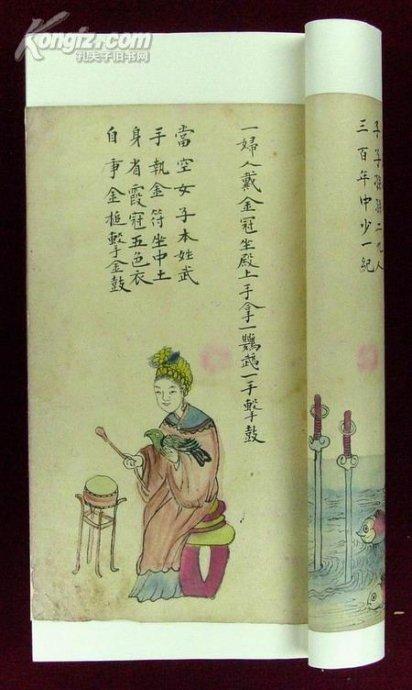 Kongfz.com
孔夫子旧书网
子子孫孫二九人
三百年中少一紀
一婦人戴金冠坐殿上手拿一鸚鵡一手擊鼓
當空女子本姓武
手執金符坐中土
身省霞冠五色衣
自事金槌擊金鼓